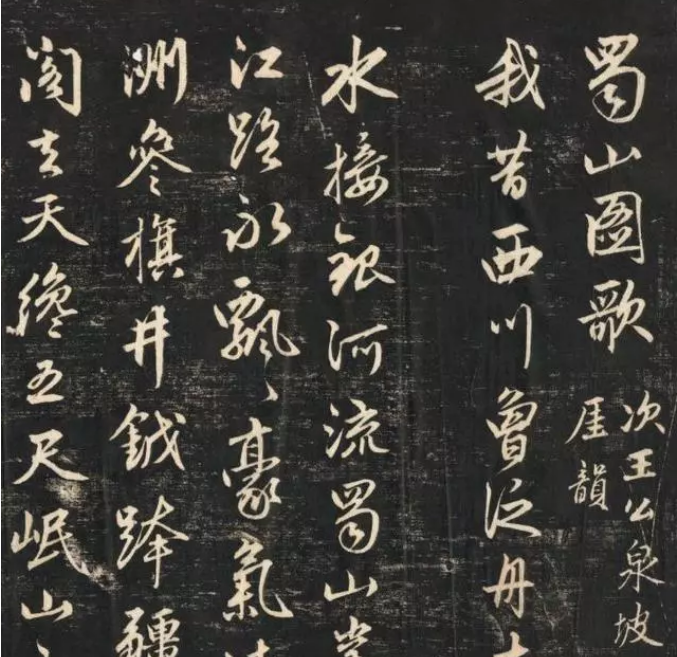 蜀山圖歌
次王公泉坡
厓韻
我昔西川曾泛舟
水接銀河流蜀山
江路永飄〻豪氣
洲參旗井鉞跨疆
閣去天纔五尺岷山